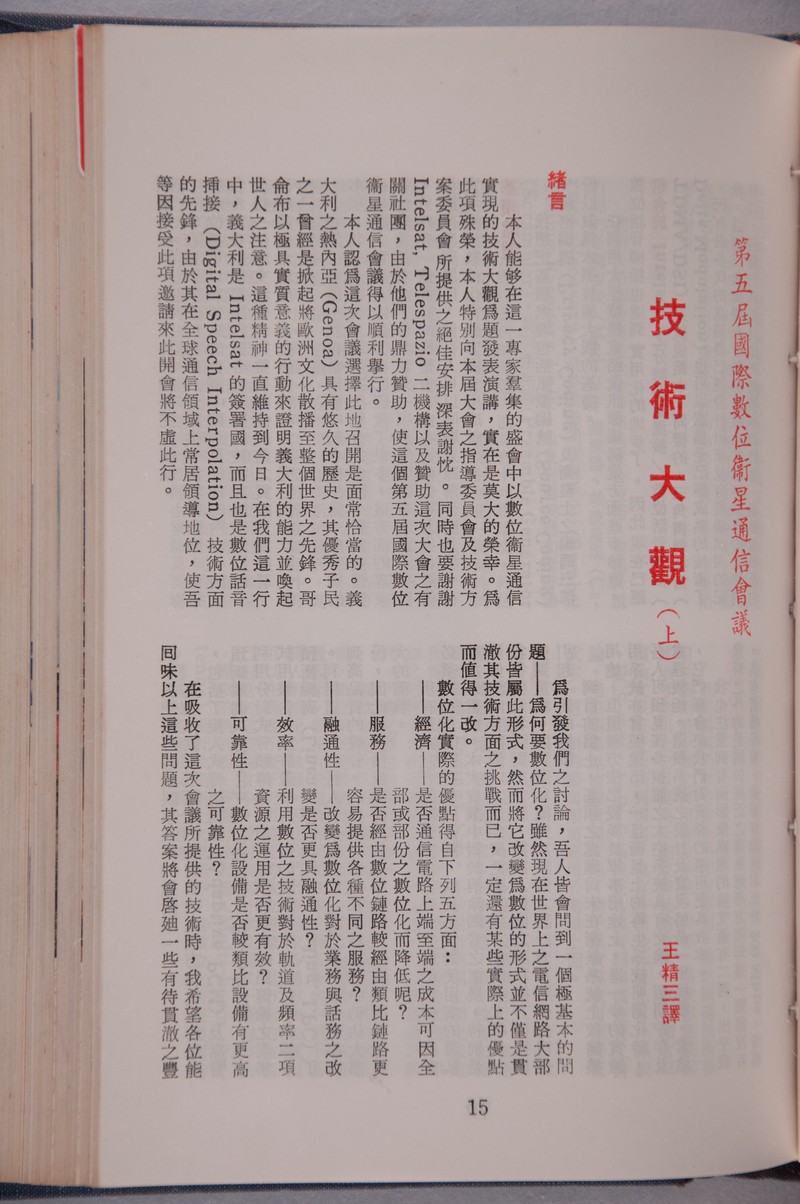 第五屆國際數位衞星通信會議
技術大觀（上）
王精三譯
緒言
本人能够在這一專家羣集的盛會中以數位衞星通信
實現的技術大觀爲題發表演講，實在是莫大的榮幸。爲
此項殊榮，本人特別向本屆大會之指導委員會及技術方
案委員會 所提供之絕佳安排 深表謝忱 。同時也要謝謝
Intelsat, Telespazio 二機構以及贊助這次大會之有
關社團，由於他們的鼎力贊助，使這個第五屆國際數位
衞星通信會議得以順利擧行。
本人認爲這次會議選擇此地召開是面常恰當的。義
大利之熱內亞（Genoa）具有悠久的歷史，其優秀子民
之一曾經是掀起將歐洲文化散播至整個世界之先鋒。哥
侖布以極具實質意義的行動來證明義大利的能力並喚起
世人之注意。這種精神一直維持到今日。在我們這一行
中，義大利是 Intelsat 的簽署國，而且也是數位話音
挿接（Digital Speech Interpolation）技術方面
的先鋒，由於其在全球通信領域上常居領導地位，使吾
等因接受此項邀請來此開會將不虛此行。
爲引發我們之討論，吾人皆會問到一個極基本的問
題——爲何要數位化？雖然現在世界上之電信網路大部
份皆屬此形式，然而將它改變爲數位的形式並不僅是貫
澈其技術方面之挑戰而已，一定還有某些實際上的優點
而值得一改。
數位化實際的優點得自下列五方面：
——經濟——是否通信電路上端至端之成本可因全
部或部份之數位化而降低呢？
——服務——是否經由數位鏈路較經由類比鏈路更
容易提供各種不同之服務？
——融通性——改變爲數位化對於業務與話務之改
變是否更具融通性？
——效率——利用數位之技術對於軌道及頻率二項
資源之運用是否更有效？
——可靠性——數位化設備是否較類比設備有更高
之可靠性？
在吸收了這次會議所提供的技術時，我希望各位能
回味以上這些問題，其答案將會啓廸一些有待貫澈之豐
15